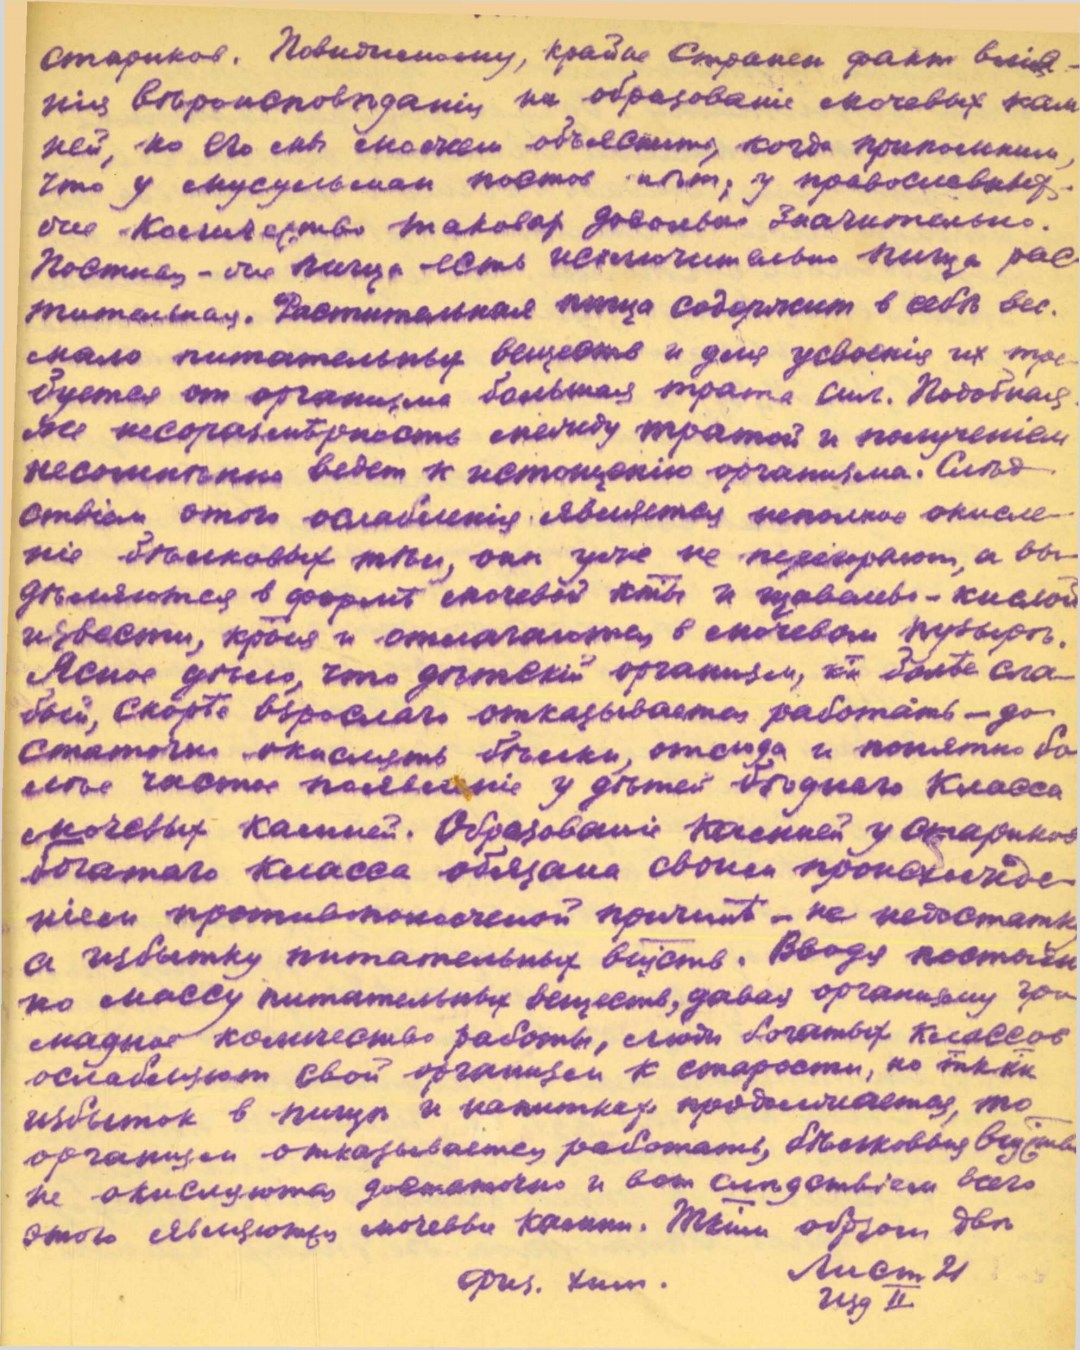 стариков. Повидимому, крайне странен факт влія-
нія вѣроисповѣданія на образованіе мочевых кам
ней, но его мы можем объяснить, когда припомним,
что у мусульман постов нѣт, у православных-
же количество таковых довольно значительно.
Постная-же пища есть исключительно пища рас
тительная. Растительная пища содержит в себѣ вес.
мало питательных веществ и для усвоенія их тре-
буется от организма большая трата сил. Подобная
же несоразмѣрность между тратой и полученіем
несомнѣнно ведет к истощенію организма. Слѣд-
ствіем этого ослабленія является неполное окисле-
ніе бѣлковых тѣл, они уже не перегорают, а вы-
дѣляются в формѣ мочевой кты и щавелево-кислой
извести, крыя и отлагаются в мочевом пузырѣ.
Ясное дѣло, что дѣтскій организм, кк болѣе сла-
бый, скорѣе взрослаго отказывается работать - до-
статочно окислять бѣлки, отсюда и понятно бо
лѣе частое появленіе у дѣтей бѣднаго класса
мочевых камней. Образованіе камней у стариков
богатаго класса обязана своим происхожде-
ніем противоположной причинѣ - не недостатку
а избытку питательных вществ. Вводя постоян
но массу питательных веществ, давая организму гро
мадное количество работы, люди богатых классов
ослабляют свой организм к старости, но ткк кк
избыток в пищѣ и напитках продолжается, то
организм отказывается работать, бѣлковыя вщства
не окисляются достаточно и вот слѣдствіем всего
этого являются мочевые камни. Ткім образом двѣ
Физ. хим. Лист 21
Изд II